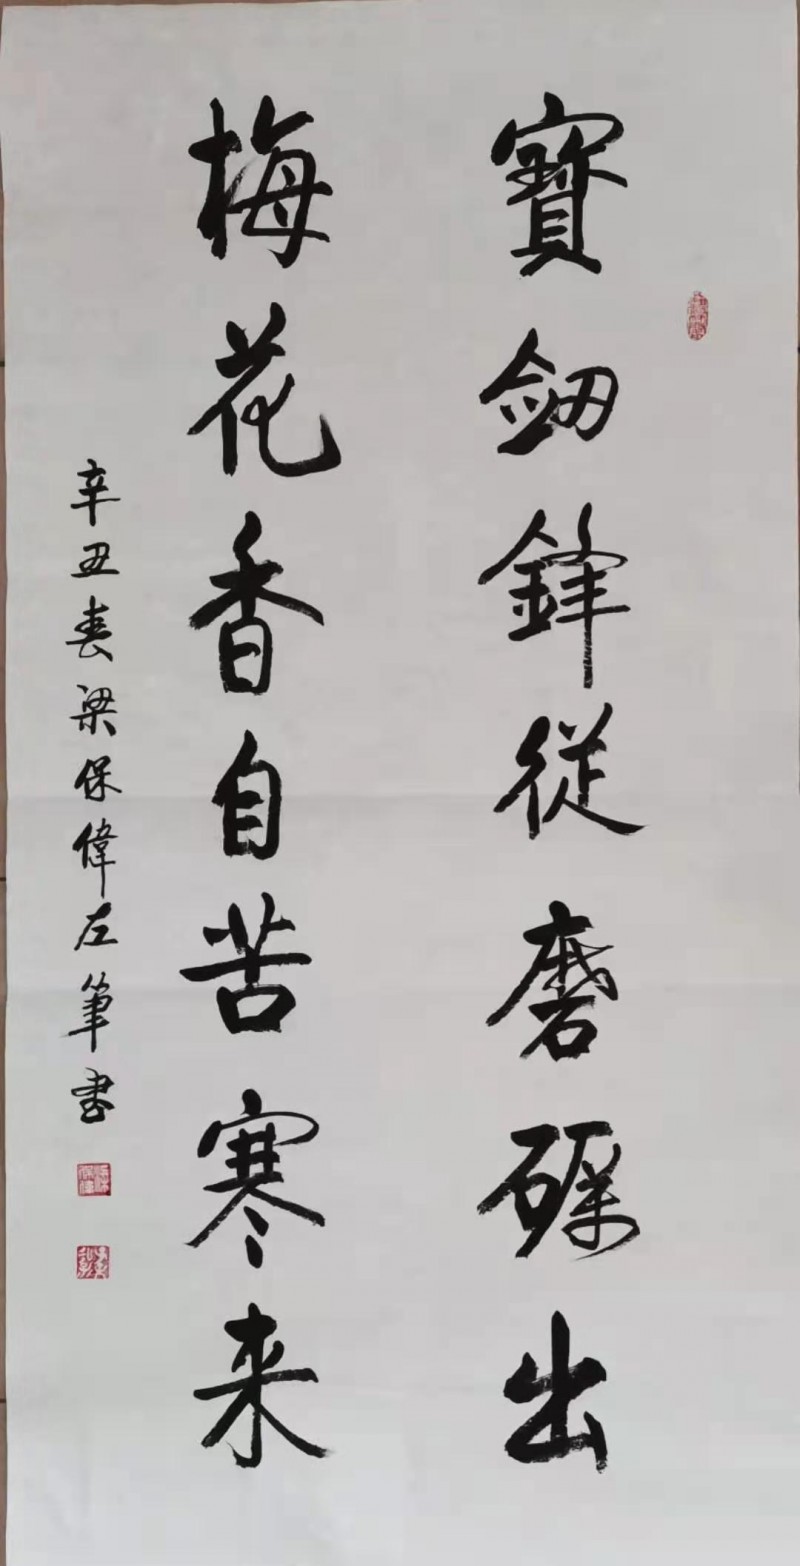 寶劒鋒從磨礪出
梅花香自苦寒来
辛丑春梁保偉左筆書